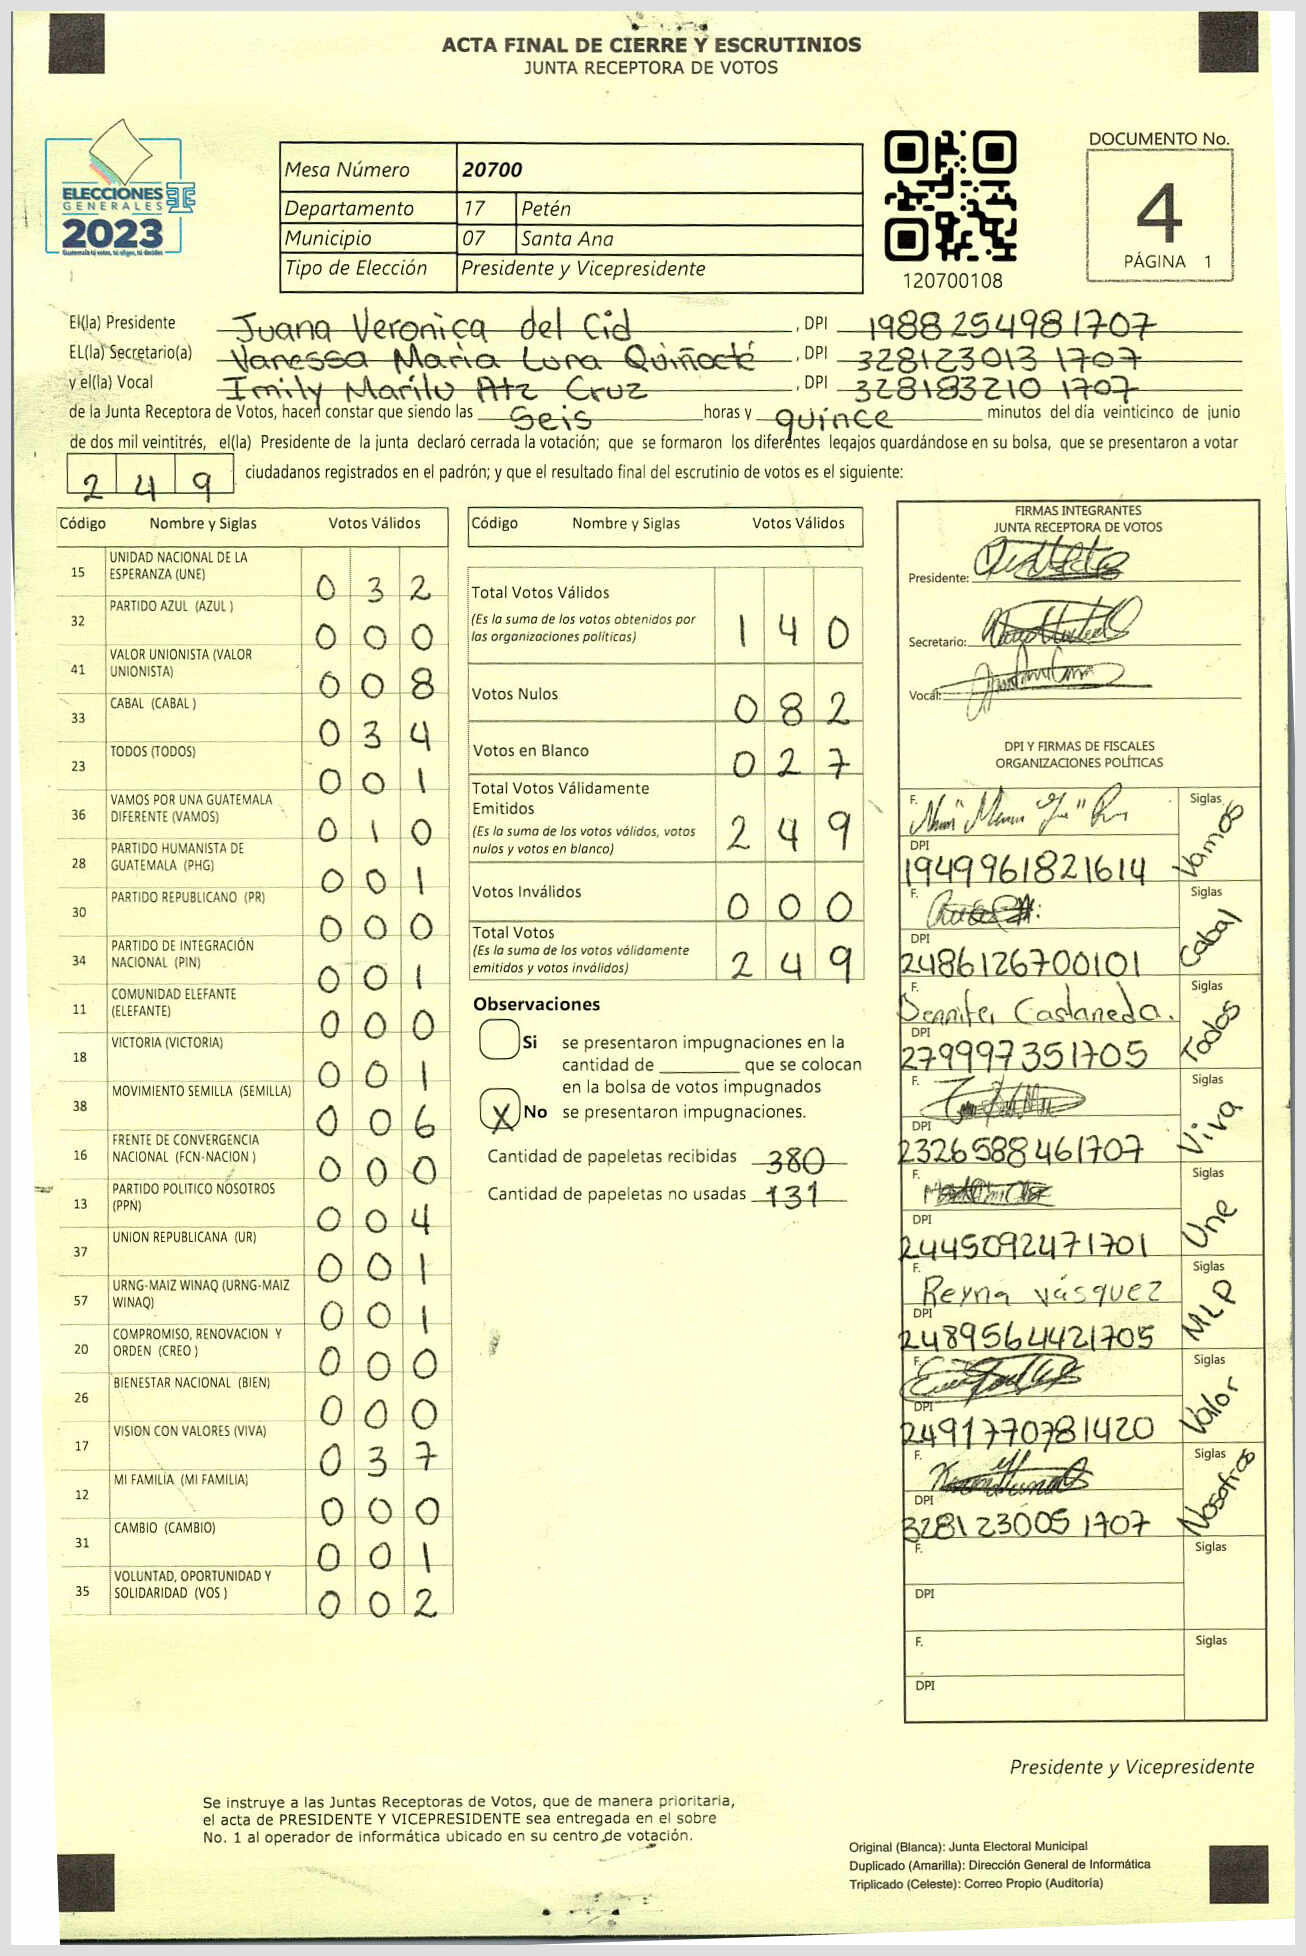 ACTA FINAL DE CIERRE Y ESCRUTINIOS
JUNTA RECEPTORA DE VOTOS
ELECCIONES
GENERALES
2023
Mesa Número 20700
Departamento 17 Petén
Municipio 07 Santa Ana
Tipo de Elección Presidente y Vicepresidente
120700108
DOCUMENTO No.
4
PÁGINA 1
El(la) Presidente Juana Veronica del Cid , DPI 1988254981707
EL(la) Secretario(a) Vanessa Maria Luna Quiñocté , DPI 3281230131707
y el(la) Vocal Imily Marilu Atz Cruz , DPI 3281832101707
de la Junta Receptora de Votos, hacen constar que siendo las seis horas y quince minutos del día veinticinco de junio
de dos mil veintitrés, el(la) Presidente de la junta declaró cerrada la votación; que se formaron los diferentes legajos quardándose en su bolsa, que se presentaron a votar
249 ciudadanos registrados en el padrón; y que el resultado final del escrutinio de votos es el siguiente:
Código Nombre y Siglas Votos Válidos
15 UNIDAD NACIONAL DE LA
ESPERANZA (UNE) 032
32 PARTIDO AZUL (AZUL ) 000
41 VALOR UNIONISTA (VALOR
UNIONISTA) 008
33 CABAL (CABAL ) 034
23 TODOS (TODOS) 001
36 VAMOS POR UNA GUATEMALA
DIFERENTE (VAMOS) 010
28 PARTIDO HUMANISTA DE
GUATEMALA (PHG) 001
30 PARTIDO REPUBLICANO (PR) 000
34 PARTIDO DE INTEGRACIÓN
NACIONAL (PIN) 001
11 COMUNIDAD ELEFANTE
(ELEFANTE) 000
18 VICTORIA (VICTORIA) 001
38 MOVIMIENTO SEMILLA (SEMILLA) 006
16 FRENTE DE CONVERGENCIA
NACIONAL (FCN-NACION ) 000
13 PARTIDO POLITICO NOSOTROS
(PPN) 004
37 UNION REPUBLICANA (UR) 001
57 URNG-MAIZ WINAQ (URNG-MAIZ
WINAQ) 001
20 COMPROMISO, RENOVACION Y
ORDEN (CREO ) 000
26 BIENESTAR NACIONAL (BIEN) 000
17 VISION CON VALORES (VIVA) 037
12 MI FAMILIA (MI FAMILIA) 000
31 CAMBIO (CAMBIO) 001
35 VOLUNTAD, OPORTUNIDAD Y
SOLIDARIDAD (VOS ) 002
Código Nombre y Siglas Votos Válidos
Total Votos Válidos
(Es la suma de los votos obtenidos por
las organizaciones políticas) 140
Votos Nulos 082
Votos en Blanco 027
Total Votos Válidamente
Emitidos
(Es la suma de los votos válidos, votos
nulos y votos en blanco) 249
Votos Inválidos 000
Total Votos
(Es la suma de los votos válidamente
emitidos y votos inválidos) 249
Observaciones
Si se presentaron impugnaciones en la
cantidad de ________ que se colocan
en la bolsa de votos impugnados
X No se presentaron impugnaciones.
Cantidad de papeletas recibidas 380
Cantidad de papeletas no usadas 131
FIRMAS INTEGRANTES
JUNTA RECEPTORA DE VOTOS
Presidente:
Secretario:
Vocal:
DPI Y FIRMAS DE FISCALES
ORGANIZACIONES POLÍTICAS
F. Siglas Vamos
DPI
1949961821614
F. Siglas Cabal
DPI
2486126700101
F. Jennifer Castaneda. Siglas Todos
DPI
279997351705
F. Siglas Viva
DPI
2326588461707
F. Siglas Une
DPI
2445092471701
F. Reyna vásquez Siglas MLP
DPI
2489564421705
F. Siglas Valor
DPI
2491770781420
F. Siglas Nosotros
DPI
3281230051707
F. Siglas
DPI
F. Siglas
DPI
Presidente y Vicepresidente
Se instruye a las Juntas Receptoras de Votos, que de manera prioritaria,
el acta de PRESIDENTE Y VICEPRESIDENTE sea entregada en el sobre
No. 1 al operador de informática ubicado en su centro de votación.
Original (Blanca): Junta Electoral Municipal
Duplicado (Amarilla): Dirección General de Informática
Triplicado (Celeste): Correo Propio (Auditoría)